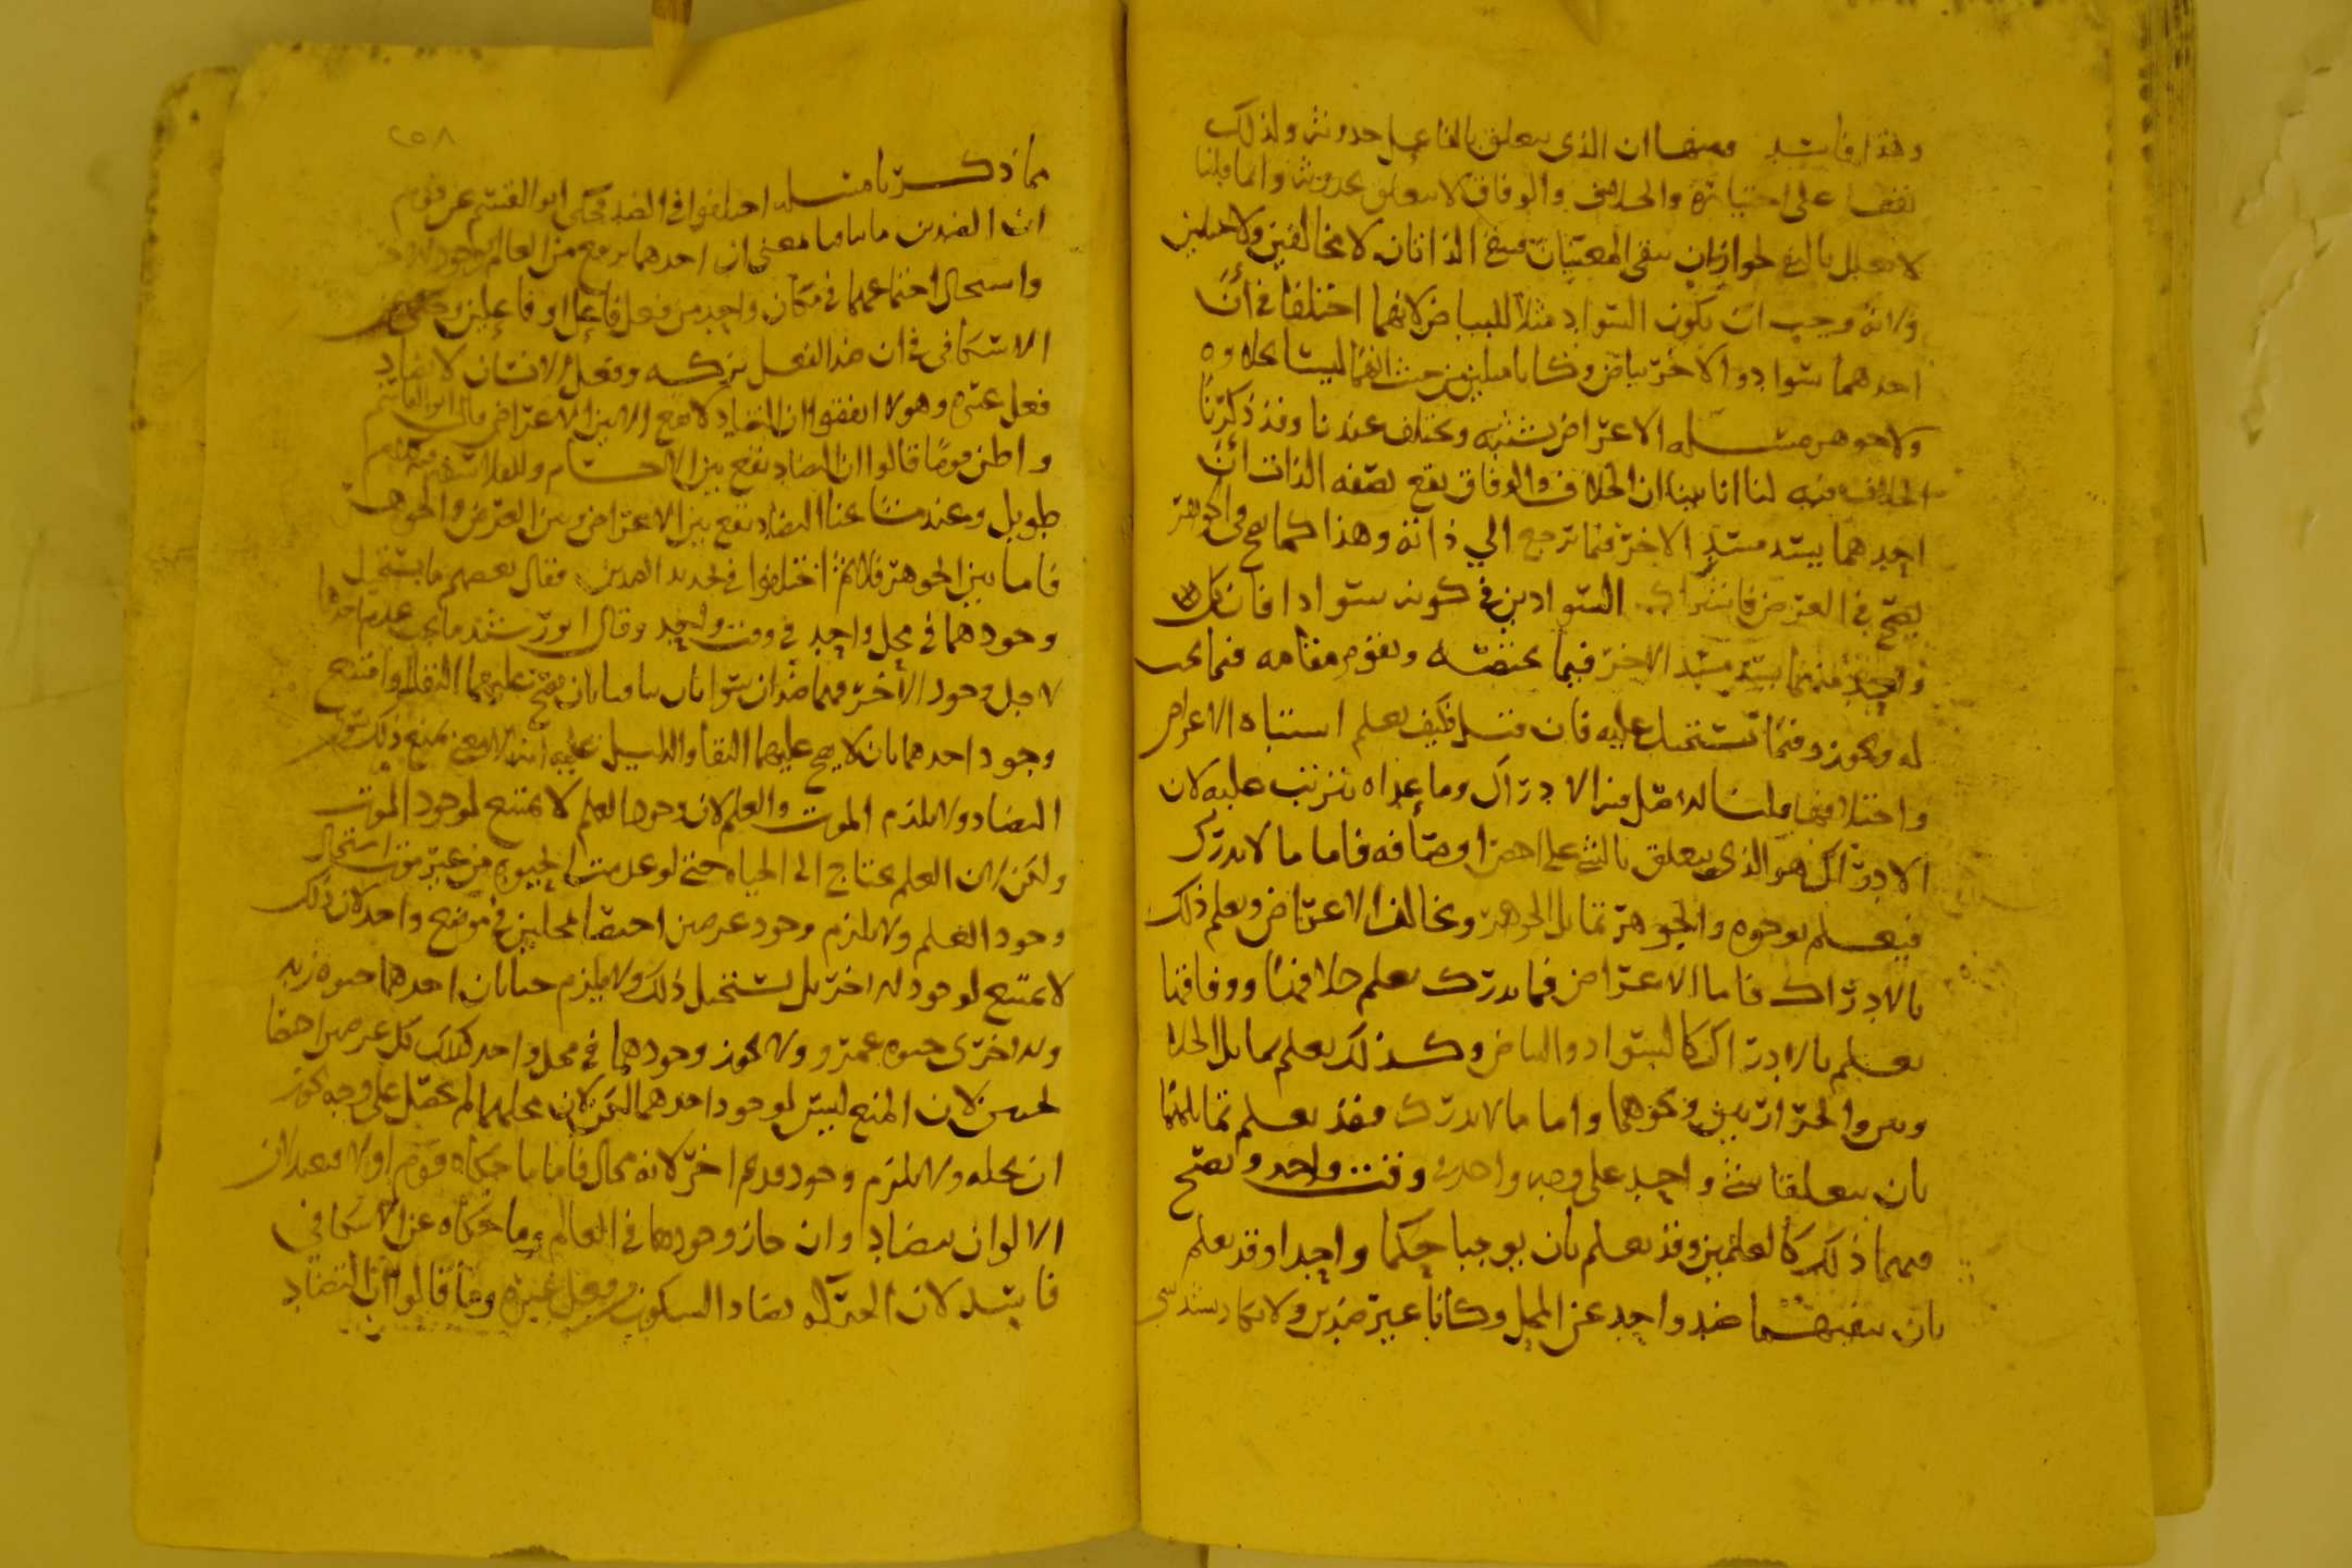 وهذا فاسد ومنها ان الذي يتعلق بالفاعل حدوثه ولذلك
يقف على اختياره والخلاف والوفاق لا يتعلق بحدوثه وانما قلنا
لا يعلل بالنفي لجواز ان ينفى المعنيان فيبقى الذاتان لا مخالفين ولا مثلين
ولانه وجب ان يكون السواد مثلا للبياض لانهما اختلفا في ان
احدهما سواد والاخر بياض وكانا مثلين من حيث انهما ليسا بحلاوة
ولا جوهر مسله الاعراض تشتبه وتختلف عندنا وقد ذكرنا
الخلاف فيه لنا انا بينا ان الخلاف والوفاق يقع بصفه الذات ان
احدهما يسد مسد الاخر فيما ترجع الي ذاته وهذا كما يصح في الجوهر
يصح في العرض فاشتراك السوادين في كونه سوادا فان كل
واحد منهما يسد مسد الاخر فيما يختصه ويقوم مقامه فيما يجب
له ويجوز وفيما يستحيل عليه فان قيل فكيف يعلم اشتباه الاعراض
واختلافها قلنا الاصل فيه الادراك وما عداه يترتب عليه لان
الادراك هو الذي يتعلق بالشي على اخص اوصافه فاما ما لا يدرك
فيعلم بوجوه والجوهر تماثل الجوهر وتخالف الاعراض ويعلم ذلك
بالادراك فاما الاعراض فما يدرك يعلم خلافها ووفاقها
يعلم بالادراك كالسواد والبياض وكذلك يعلم تماثل الحلا
وتين والحرارتين ونحوهما واما ما لا يدرك فقد يعلم تماثلهما
بان يتعلقا بشي واحد على وجه واحد في وقت واحد ويصح
فيهما ذلك كالعلمين وقد يعلم بان يوجبا حكما واحدا وقد يعلم
بان ينفيهما ضد واحد عن المحل وكانا غير ضدين ولا يكاد يشذ شي
مما ذكرنا مسله اختلفوا في الضد فحكى ابو القسم عن قوم
ان الضدين ما تنافيا معنى ان احدهما يرفع من العالم بوجود الاخر
واستحال اجتماعهما في مكان واحد من فعل فاعل او فاعلين وحكى عن
الاسكافي ان ضد الفعل تركه وفعل الانسان لا يضاد
فعل غيره وهولا اتفقوا ان التضاد لا يقع الا بين الاعراض قال ابو القاسم
واظن قوما قالوا ان التضاد يقع بين الاجسام وللفلاسفه فيه كلام
طويل وعند مشايخنا التضاد يقع بين الاعراض وبين العرض والجوهر
فاما بين الجوهر فلا ثم اختلفوا في تحديد الضدين فقال بعضهم ما يستحيل
وجودهما في محل واحد في وقت واحد وقال ابو رشيد ما يجب عدم احدهما
لاجل وجود الاخر فهما ضدان سوا كانا باقيان يصح عليهما البقا او امتنع
وجود احدهما بان لا يصح عليهما البقا والدليل عليه
التضاد ولا يلزم الموت والعلم لان وجود العلم لا يمتنع لوجود الموت
ولكن لان العلم يحتاج الى الحياه حتى لو عدمت الحيوه من غير موت استحال
وجود العلم ولا يلزم وجود عرضين اختصا بمحلين في موضع واحد لان ذلك
لا يمتنع لوجود الاخر بل يستحيل ذلك ولا يلزم حياتان احدهما حيوه زيد
والاخرى حيوه عمرو ولا يجوز وجودهما في محل واحد كذلك كل عرضين اختصا
لحيين لان المنع ليس لوجود احدهما لكن لان محلهما لم يحصل على وجه يجوز
ان يحله ولا يلزم وجود قديم اخر لانه محال فاما ما حكاه قوم اولا فبعيد لان
الالوان يتضاد وان جاز وجودها في العالم وما حكاه عن الاسكافي
فاسد لان الحركه يضاد السكون من فعل غيره وما قالوا ان التضاد